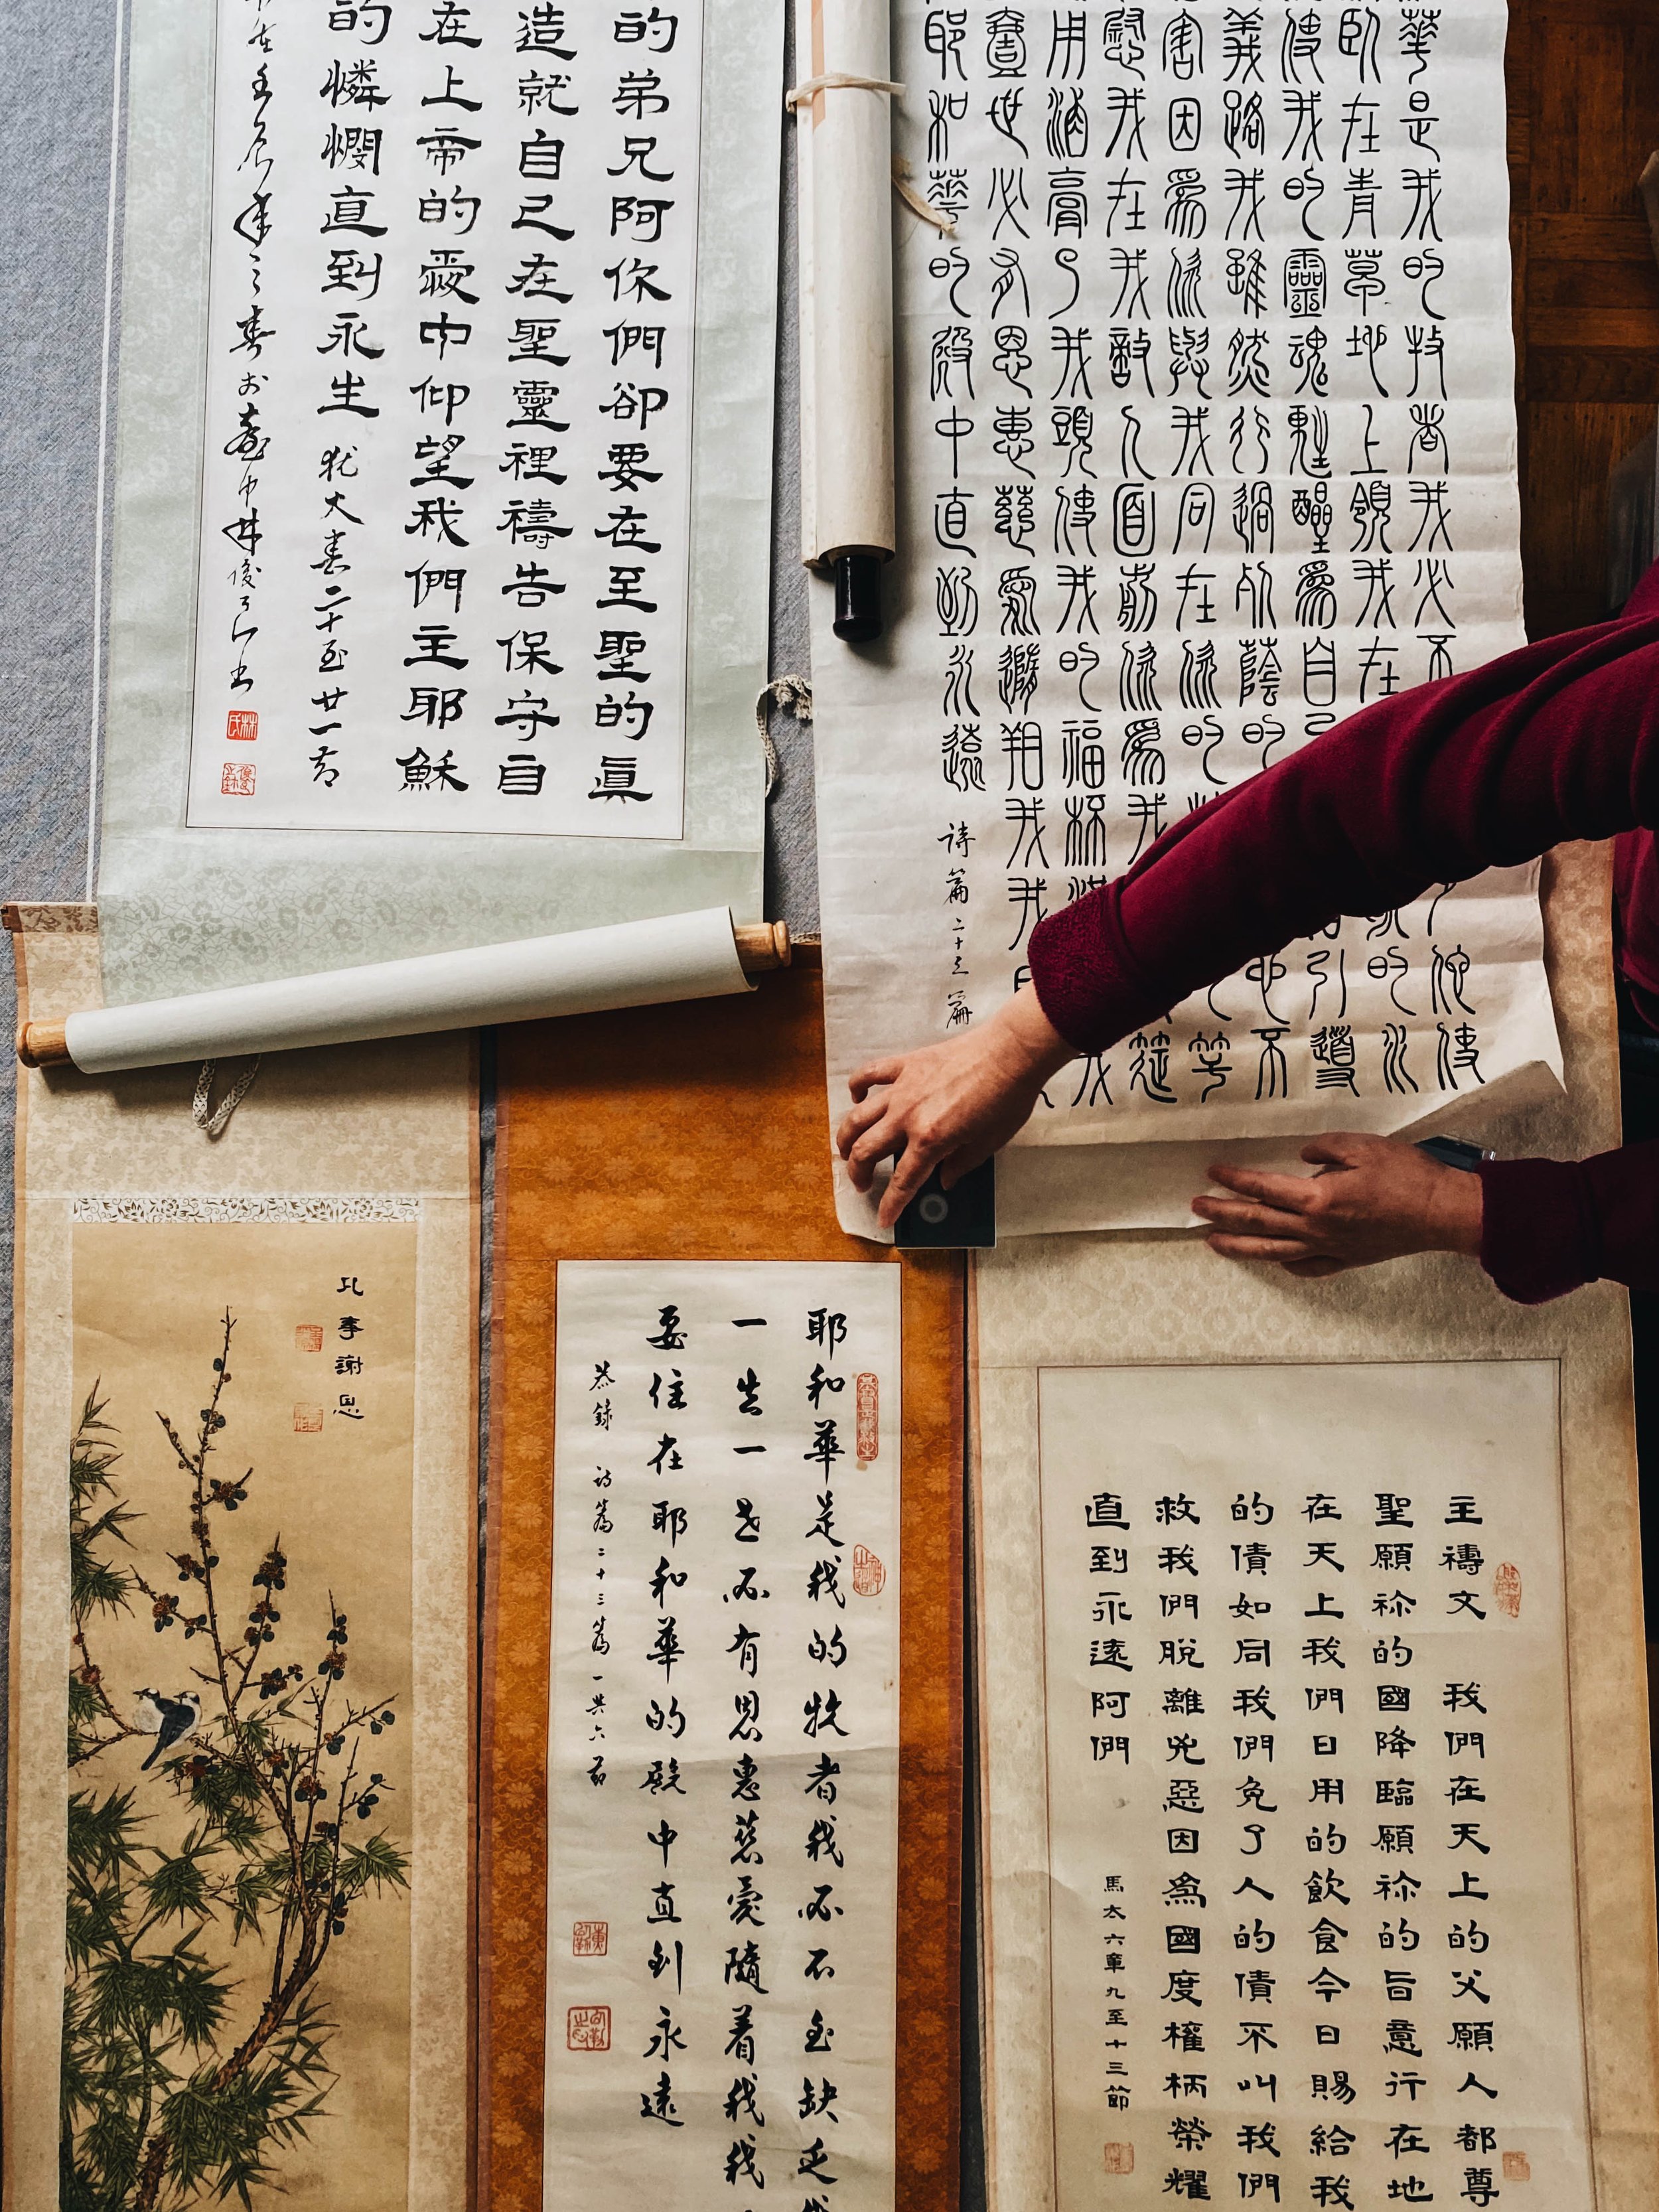 的弟兄阿你們卻要在至聖的眞
造就自己在聖靈裡禱告保守自
在上帝的愛中仰望我們主耶穌
的憐憫直到永生 猶大書二十至廿一節
在壬辰年之春於臺中林俊
林氏
華是我的牧者我必不 他使
臥在青草地上領我在 的水
使我的靈魂甦醒爲自己 引導
義路我雖然行過死蔭的 也不
害因爲你與我同在你的 竿
慰我在我敵人面前你爲我 筵
用油膏了我頭使我的福杯滿 我
壹世必有恩惠慈愛隨 我我
耶和華的殿中直到永遠
詩篇二十三篇
凡事謝恩
耶和華是我的牧者我必不至缺乏我
一生一世必有恩惠慈愛隨着我我
要住在耶和華的殿中直到永遠
恭錄 詩篇二十三篇一與六節
主禱文 我們在天上的父願人都尊
聖願祢的國降臨願祢的旨意行在地
在天上我們日用的飲食今日賜給我
的債如同我們免了人的債不叫我們
救我們脫離兇惡因爲國度權柄榮耀
直到永遠阿們
馬太六章九至十三節